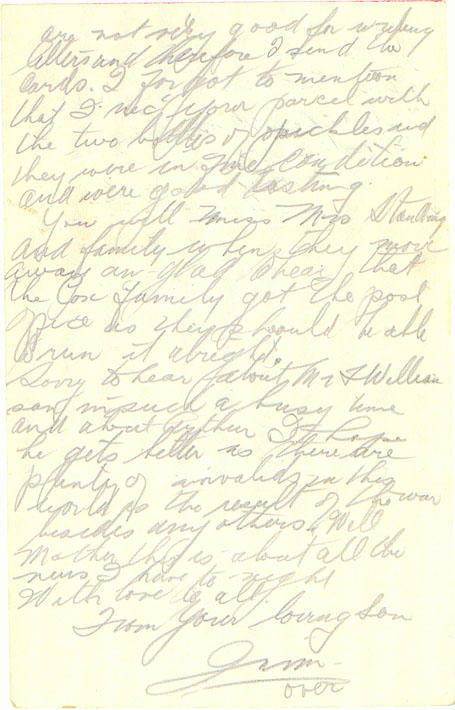 are not very good for writing
letters and therefore I send the
cards. I forgot to mention
that I rec'd your parcel with
the two bottles of pickles and
they were in fine condition
and were good tasting.
You will miss Mrs
and family when they move
away am glad hear that
the Cox Family got the post
office as they should be able
run it alright.
Sorry to hear about Mr Willian
son in such a busy time
and about I hope
he gets better as there are
plenty of invalids in this
world as the result of the war
besides any others. Well
Mother this is about all the
news I have to night
With love to all
From Your loving Son
over